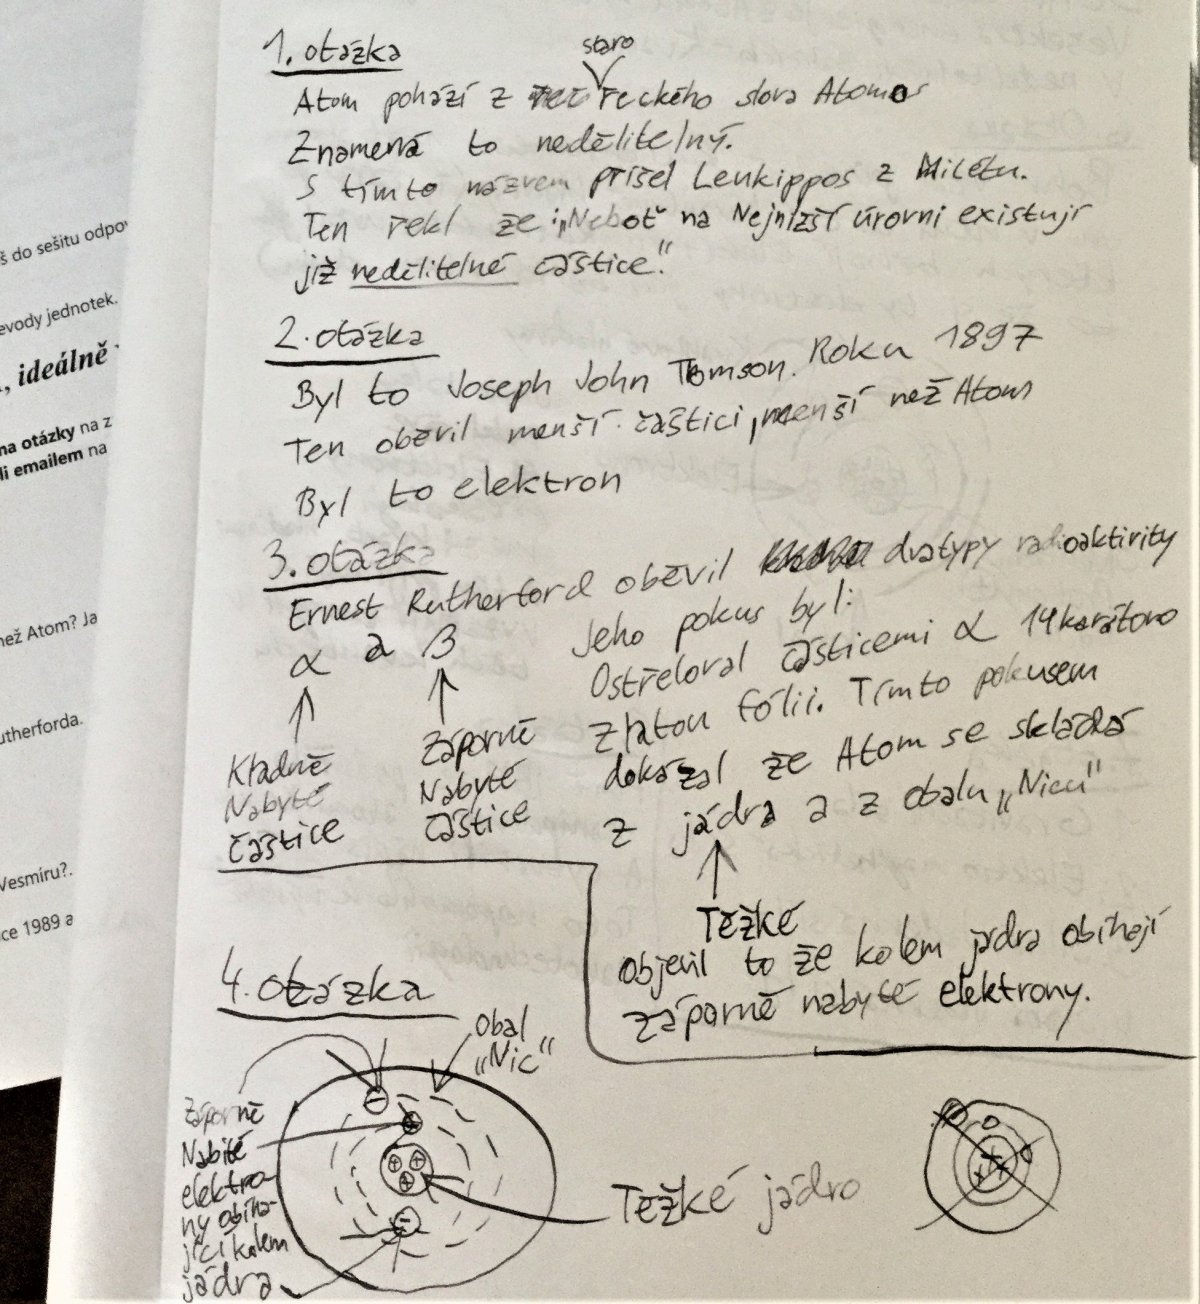 š do sešitu odpov
evody jednotek.
, ideálně
na otázky na z
li emailem na
než Atom? Ja
utherforda.
Vesmíru?.
ce 1989 a
1. otázka
staro
Atom pohází z řeckého slova Atomos
Znamená to nedělitelný.
S tímto názvem přišel Leukippos z Milétu.
Ten řekl že :„Neboť na Nejnižší úrovni existují
již nedělitelné částice."
2. otázka
Byl to Joseph John Tomson. Roku 1897
Ten oběvil menší částici, menší než Atom
Byl to elektron
3. otázka
Ernest Rutherford oběvil dva typy radioaktivity
α a β
Kladně
Nabyté
částice
Záporně
Nabyté
částice
Jeho pokus byl:
Ostřeloval částicemi α 14 karátovo
zlatou fólii. Tímto pokusem
dokázal že Atom se skládá
z jádra a z obalu „Nicu"
Těžké
objevil to že kolem jádra obíhají
záporně nabyté elektrony.
4. otázka
Obal
„Nic"
Záporně
Nabité
elektro-
ny obíha-
jící kolem
jádra
Těžké jádro